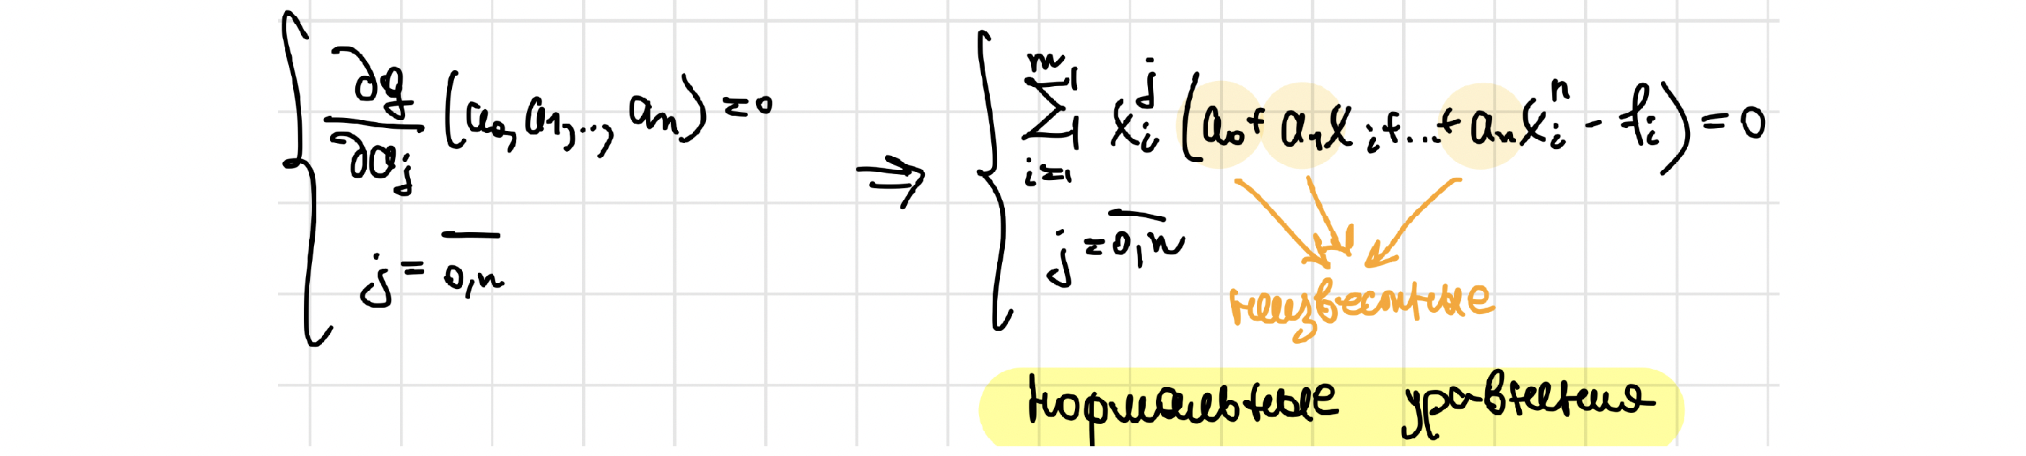 ∂g/∂a_j (a_0, a_1, ..., a_n) = 0
j = \overline{0,n}
⇒
\sum_{i=1}^{m} x_i^j (a_0 + a_1 x_i + ... + a_n x_i^n - f_i) = 0
j = \overline{0,n}
неизвестные
нормальные уравнения